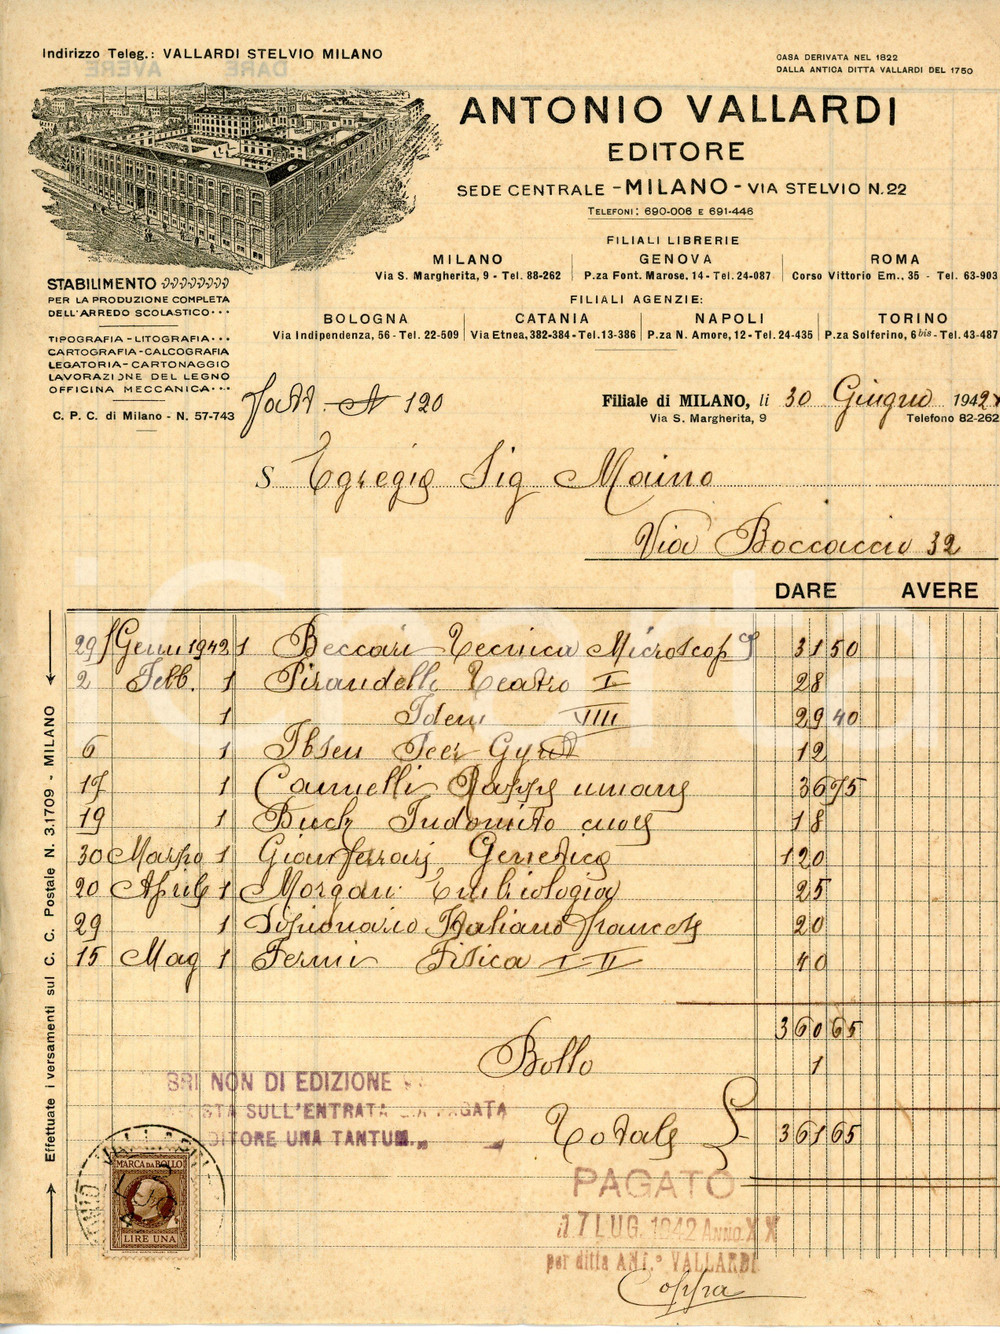 Indirizzo Teleg.: VALLARDI STELVIO MILANO
CASA DERIVATA NEL 1822
DALLA ANTICA DITTA VALLARDI DEL 1750
ANTONIO VALLARDI
EDITORE
SEDE CENTRALE - MILANO - VIA STELVIO N. 22
TELEFONI: 690-006 E 691-446
FILIALI LIBRERIE
MILANO GENOVA ROMA
Via S. Margherita, 9 - Tel. 88-262 P.za Font. Marose, 14 - Tel. 24-087 Corso Vittorio Em., 35 - Tel. 63-903
FILIALI AGENZIE:
BOLOGNA CATANIA NAPOLI TORINO
Via Indipendenza, 56 - Tel. 22-509 Via Etnea, 382-384 - Tel. 13-386 P.za N. Amore, 12 - Tel. 24-435 P.za Solferino, 6 bis - Tel. 43-487
STABILIMENTO
PER LA PRODUZIONE COMPLETA
DELL'ARREDO SCOLASTICO
TIPOGRAFIA - LITOGRAFIA
CARTOGRAFIA - CALCOGRAFIA
LEGATORIA - CARTONAGGIO
LAVORAZIONE DEL LEGNO
OFFICINA MECCANICA
C. P. C. di Milano - N. 57-743
Fatt. N 120
Filiale di MILANO, li 30 Giugno 1942 X
Via S. Margherita, 9 Telefono 82-262
S Egregio Sig Maino
Via Boccaccio 32
DARE AVERE
29 Genn 1942 1 Beccari Tecnica Microscop 31 50
2 Febb. 1 Pirandello Teatro I 28
1 Idem VIII 29 40
6 1 Ibsen Peer Gynt 12
17 1 Cannelli Razze umane 36 75
19 1 Buck Indomito cuore 18
30 Marzo 1 Gianferrari Genetica 120
20 Aprile 1 Morgan Embriologia 25
29 1 Dizionario Italiano francese 20
15 Mag 1 Fermi Fisica I II 40
360 65
Bollo 1
Totale £ 361 65
Effettuate i versamenti sul C. C. Postale N. 3.1709 - MILANO
NON DI EDIZIONE
SULL'ENTRATA PAGATA
EDITORE UNA TANTUM
MARCA DA BOLLO
LIRE UNA
PAGATO
17 LUG. 1942 Anno XX
per ditta ANT.° VALLARDI
Coppa
iCharta